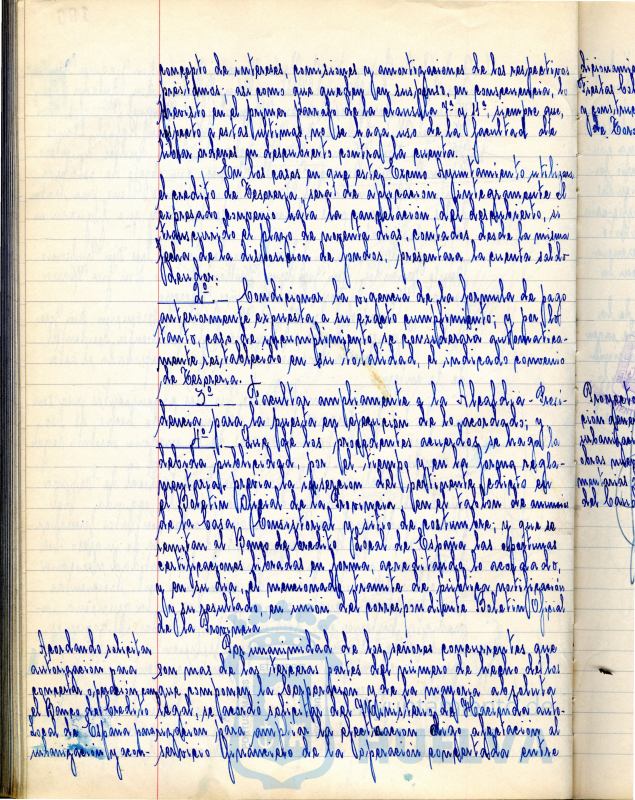 concepto de intereses, comisiones y amortizaciones de los respectivos
préstamos; así como que queden en suspenso, en consecuencia, lo
previsto en el primer párrafo de la cláusula 7ª y 11ª, siempre que,
respecto a estas últimas, no se haga uso de la facultad de
librar órdenes en descubierto contra la cuenta.
En los casos en que este Excmo Ayuntamiento utilizare
el crédito de Tesorería, será de aplicación íntegramente el
expresado convenio hasta la cancelación del descubierto, si
transcurrido el plazo de noventa días, contados desde la misma
fecha de la disposición de fondos, presentara la cuenta saldo
deudor.
2º.- Condicionar la vigencia de la fórmula de pago
anteriormente expuesta a su exacto cumplimiento; y por lo
tanto, caso de incumplimiento, se considerará automática-
mente restablecido en su totalidad, el indicado convenio
de Tesorería.
3º.- Facultar ampliamente a la Alcaldía-Presi-
dencia para la puesta en ejecución de lo acordado; y
4º.- Que de los precedentes acuerdos se haga la
debida publicidad, por el tiempo y en la forma regla-
mentaria, previa la inserción del pertinente edicto en
el Boletín Oficial de la Provincia, en el tablón de anuncios
de la Casa Consistorial y sitio de costumbre; y que se
remitan al Banco de Crédito Local de España las oportunas
certificaciones libradas en forma, acreditando lo acordado,
y en su día, el mencionado trámite de pública notificación
y su resultado, en unión del correspondiente Boletín Oficial
de la Provincia.
Acordando solicitar
autorización para
concertar operación con
el Banco de Crédito
Local de España para
urbanización y acon-
Por unanimidad de los señores concurrentes que
son más de las terceras partes del número de hecho de los
que componen la Corporación y de la mayoría absoluta
legal, se acordó solicitar del Ministerio de Hacienda auto-
rización para ampliar la afectación digo afectación al
servicio financiero de la operación concertada entre
HUELVA